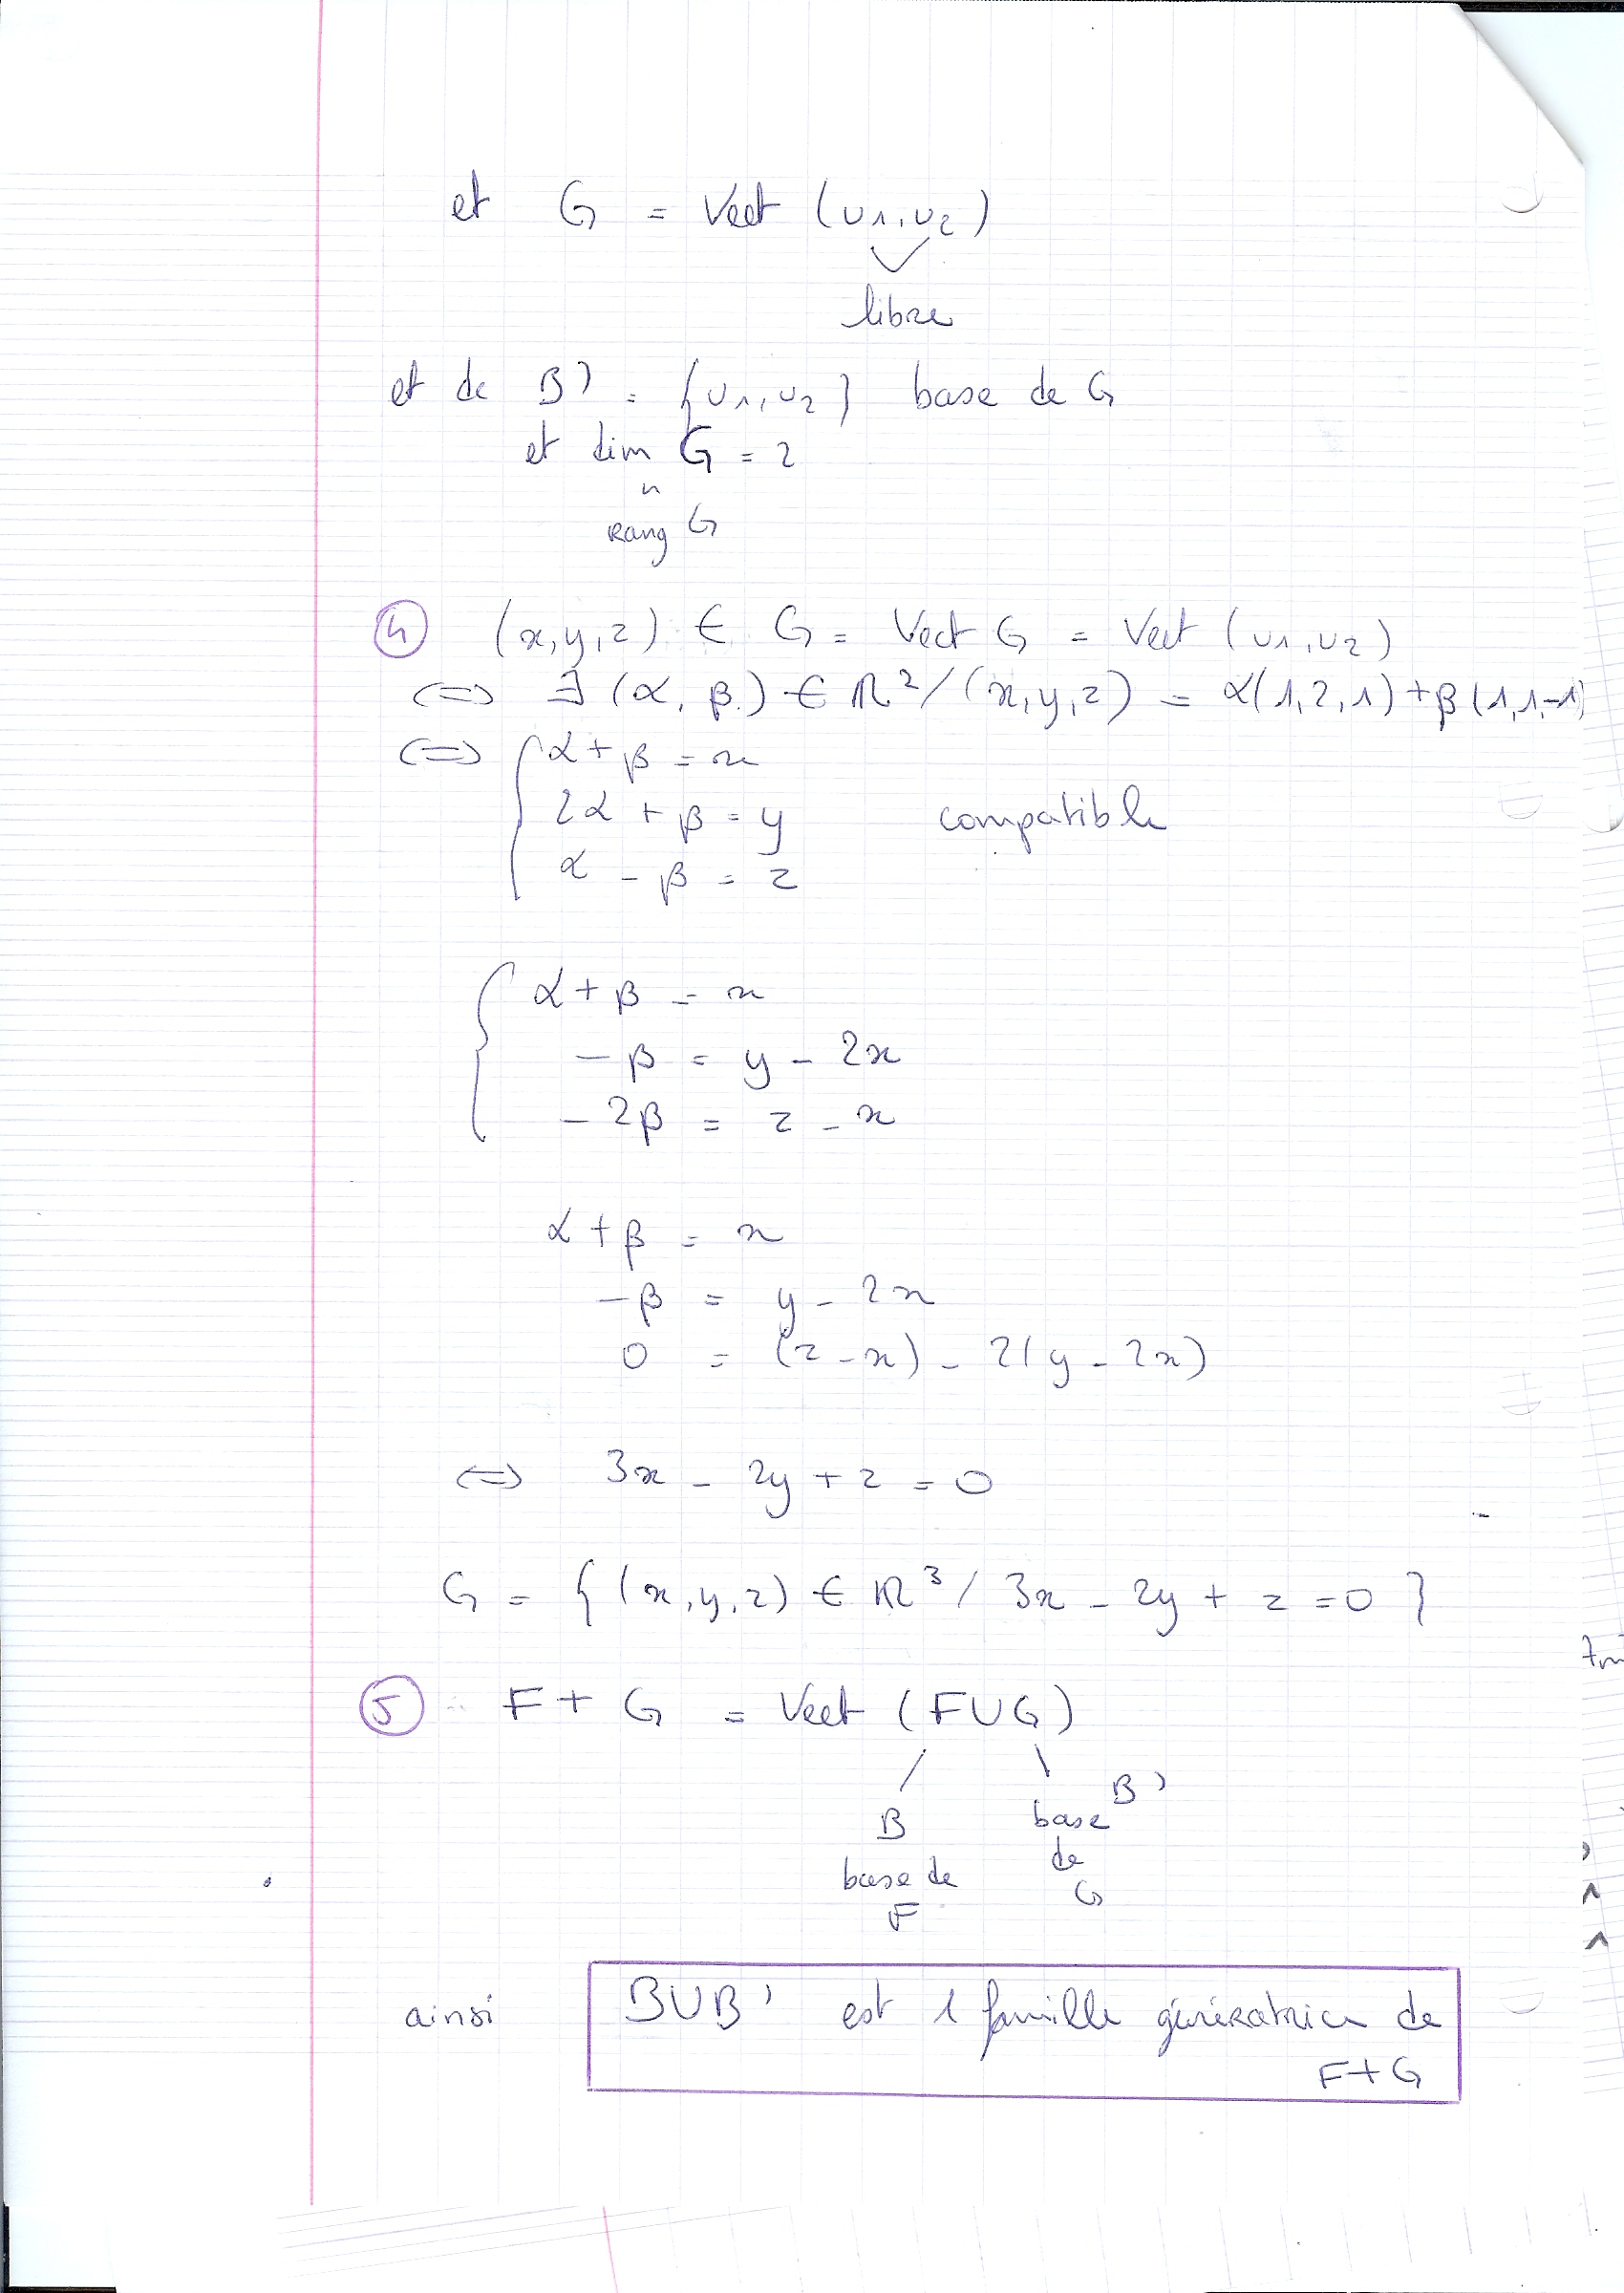 et G = Vect (u1, u2)
libre
et de B' = {u1, u2} base de G
et dim G = 2
"
rang G
④ (x, y, z) ∈ G = Vect G = Vect (u1, u2)
⟺ ∃ (α, β) ∈ ℝ² / (x, y, z) = α(1, 2, 1) + β(1, 1, -1)
⟺ { α + β = x
2α + β = y compatible
α - β = z
{ α + β = x
- β = y - 2x
- 2β = z - x
α + β = x
- β = y - 2x
0 = (z - x) - 2(y - 2x)
⟺ 3x - 2y + z = 0
G = { (x, y, z) ∈ ℝ³ / 3x - 2y + z = 0 }
⑤ F + G = Vect (F ∪ G)
B base de F
base B' de G
ainsi B ∪ B' est 1 famille génératrice de
F + G